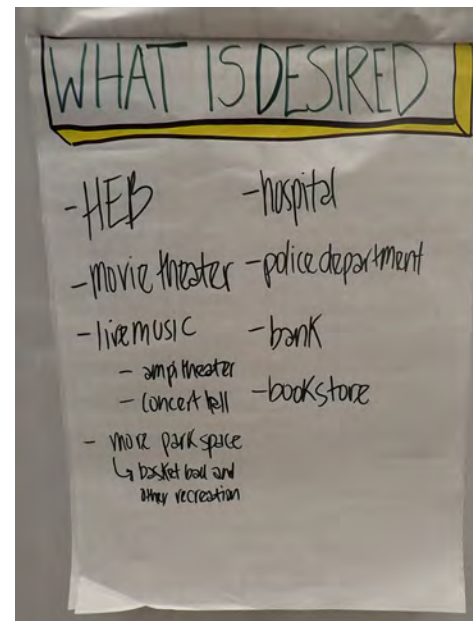 WHAT IS DESIRED
- HEB
- movie theater
- live music
- ampitheater
- concert hall
- more park space
↳ basketball and
other recreation
- hospital
- police department
- bank
- bookstore